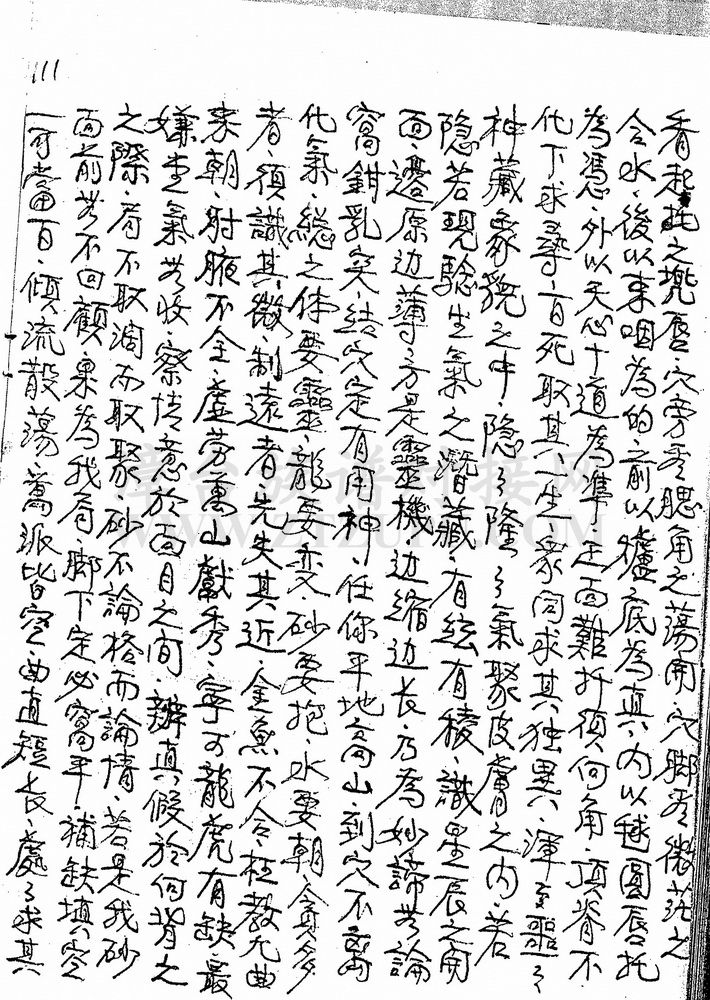 111
看起托之兜唇穴旁无腮角之蕩開穴脚无微茫之
合水後以来咽為的前以檐底為真内以毬圓唇托
為憑外以天心十道為準走面難扦須何角頂脊不
化下求尋百死取其一生眾同求其独異渾至噩々
神藏象貌之中隐々隆々氣聚皮膚之内若
隐若現驗生氣之潜藏有絃有稜識星辰之開
面邊厚边薄方是靈機边縮边長乃為妙諦若論
窩鉗乳突结穴定有用神任你平地高山到穴不离
化氣緫之体要靈龍要变砂要抱水要朝貪多
者須識其微制遠者先失其近金魚不合枉教九曲
来朝肘腋不全虚劳萬山獻秀寧可龍虎有缺最
嫌堂氣不收察情意於面目之间辨真假於向背之
之際有不取濶而取聚砂不論格而論情若是我砂
面前若不回顧果為我有脚下定必窩平補缺填空
一可當百傾流散蕩萬派皆空曲直短长處々求其